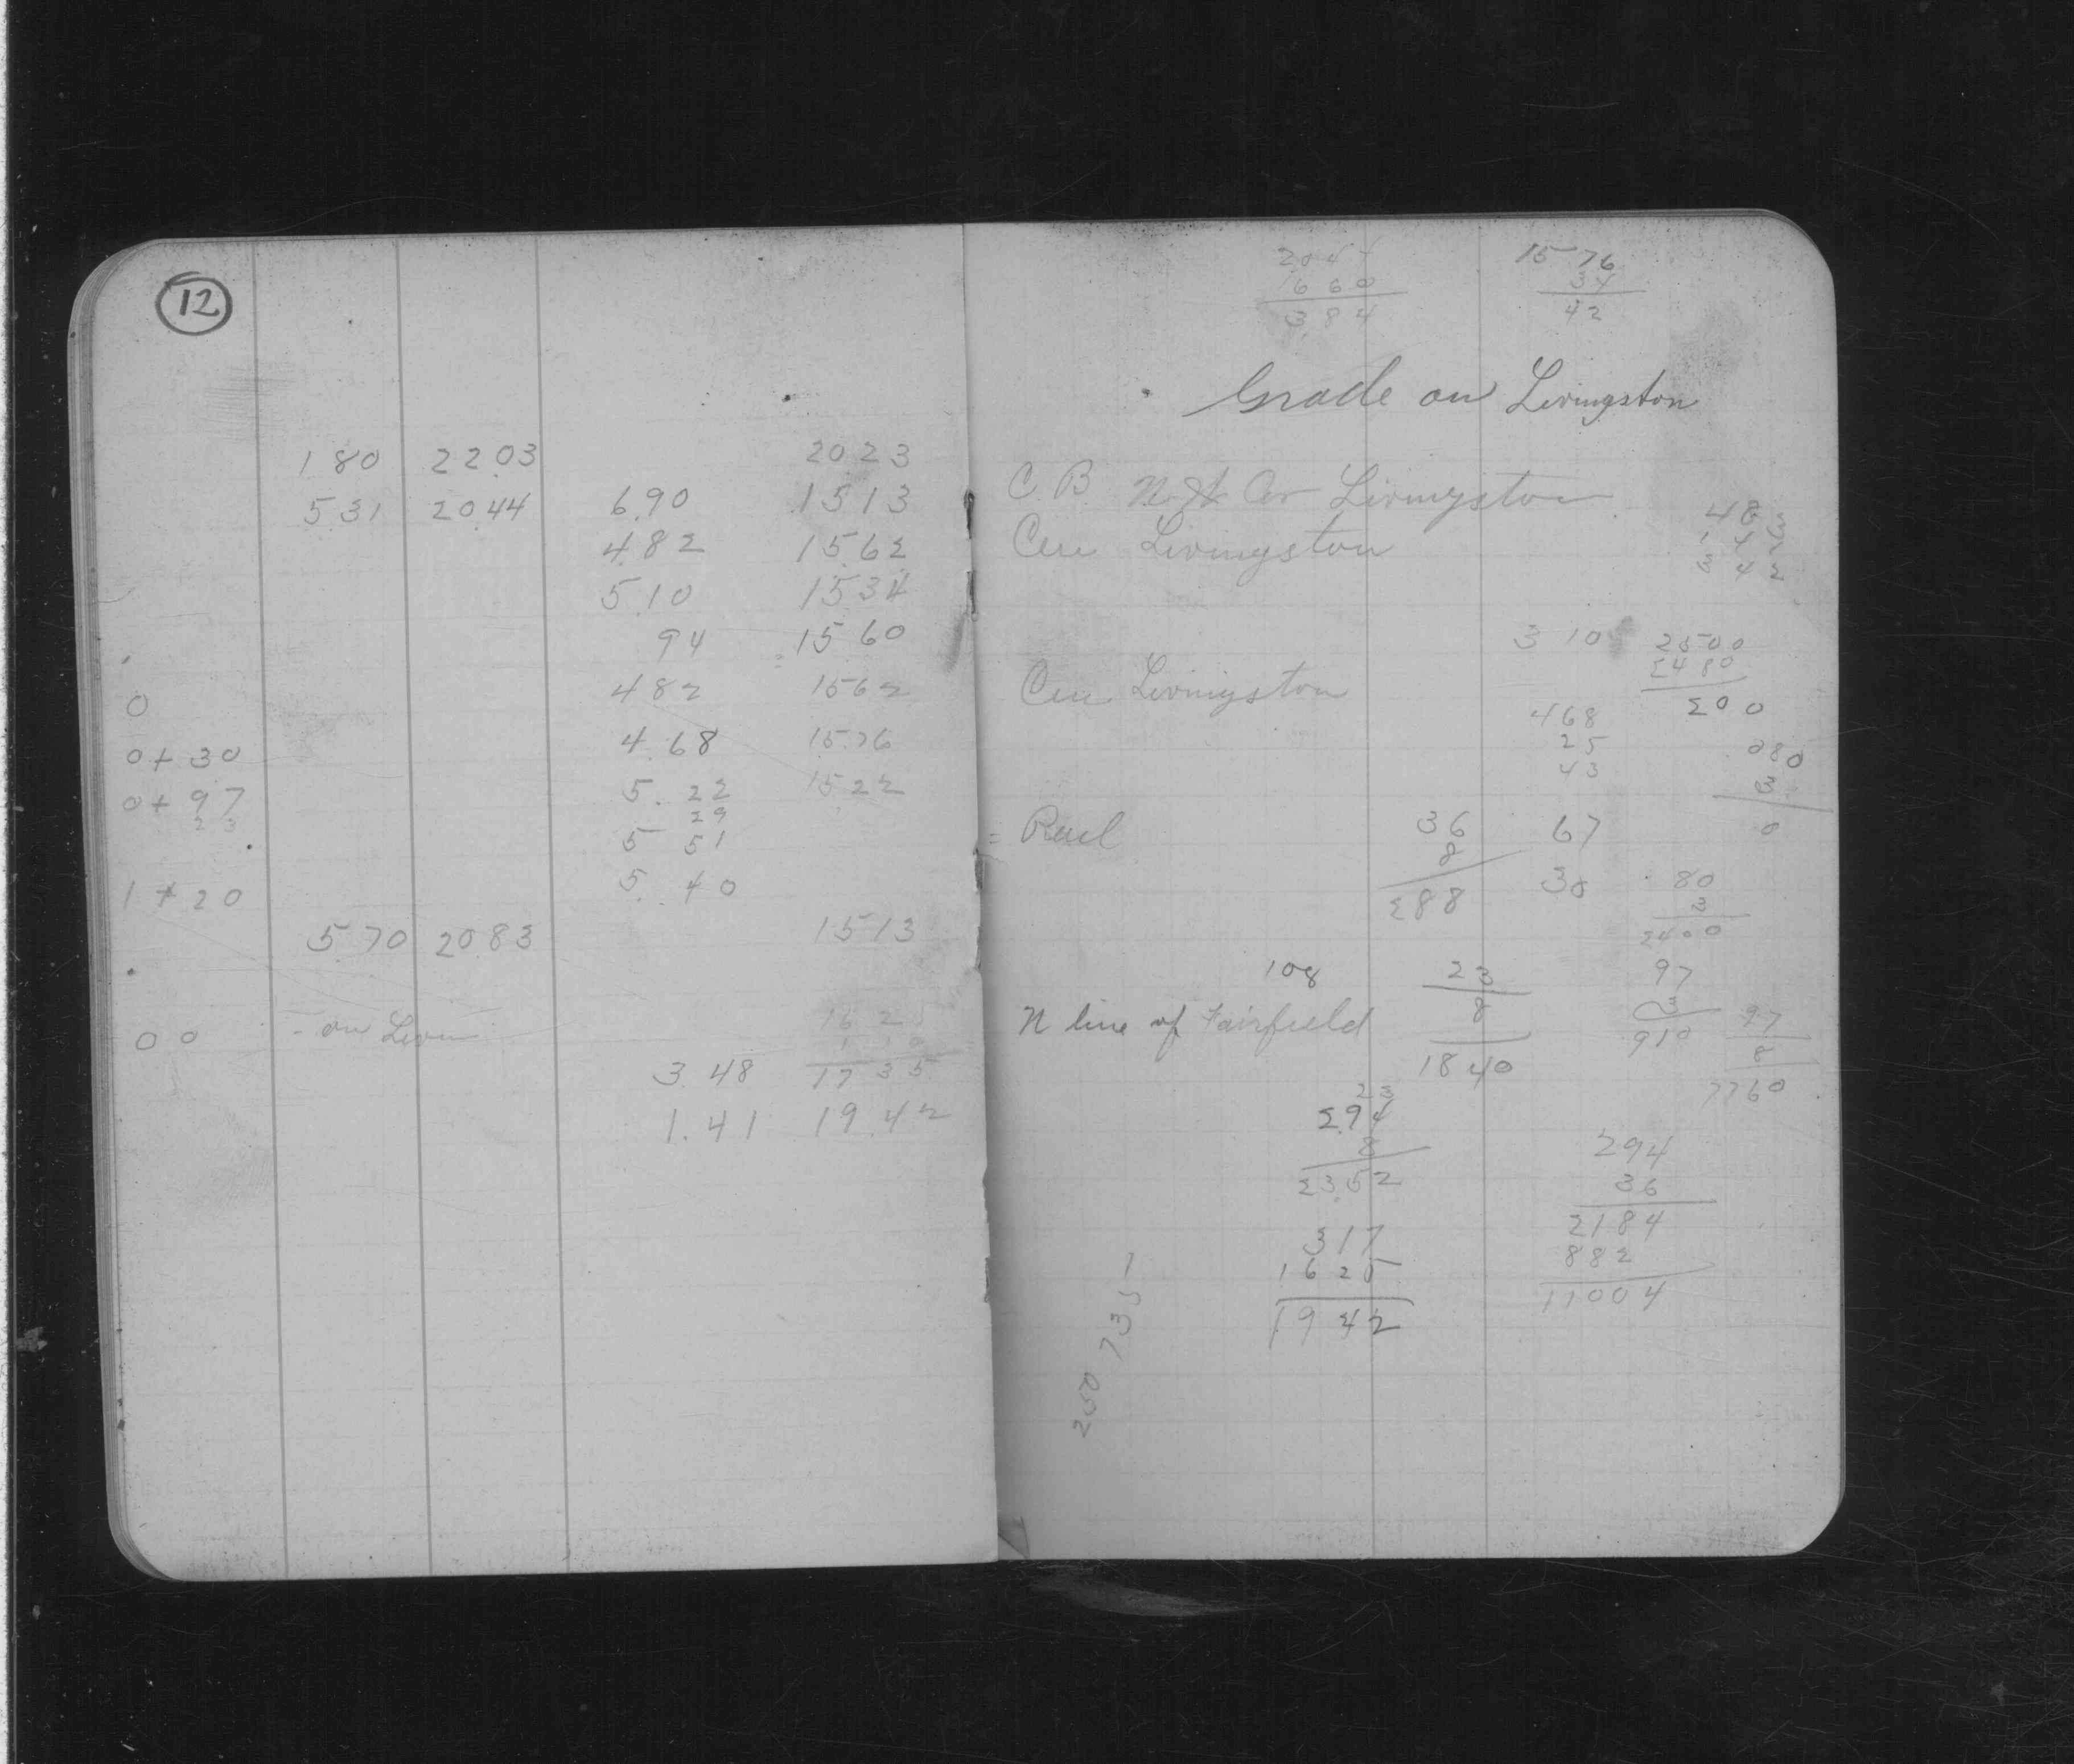 12
180 22.03 20.23
5.31 20.44 6.90 1513
4.82 15.62
5.10 1534
94 15 60
0 482 1562
0+30 4.68 15.76
0+97 5.22 1522
23 29
5 51
1+20 5.40
5.70 20.83 1513
00 - on Livin
16 2
3.48 17 35
1.41 19.42
1576
1660 34
384 42
Grade on Livingston
C.B. N.H. Cor Livingston
Cen Livingston
48
4
3 10 2500
2480
Cen Livingston 200
468
25 080
43 3
0
= Rail 36 67
8
288 38 80
3
2400
108 23 97
8
N line of Fairfield 910 97
8
1840 7760
23
294
8
2352
294
36
2184
882
11004
317
1625
1942
250 735